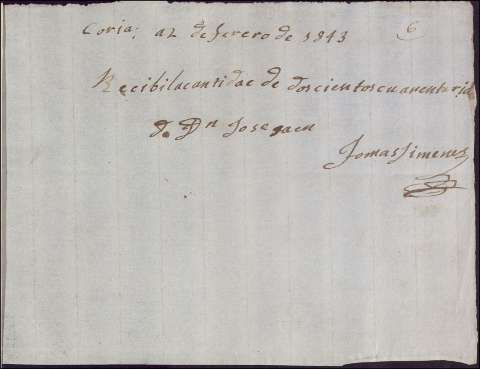 Coria; a2 de ferero de 1843
6
Recibi la cantidac de dos cientos cuarenta rs
de Dn Jose gaen
Tomas Jimenez